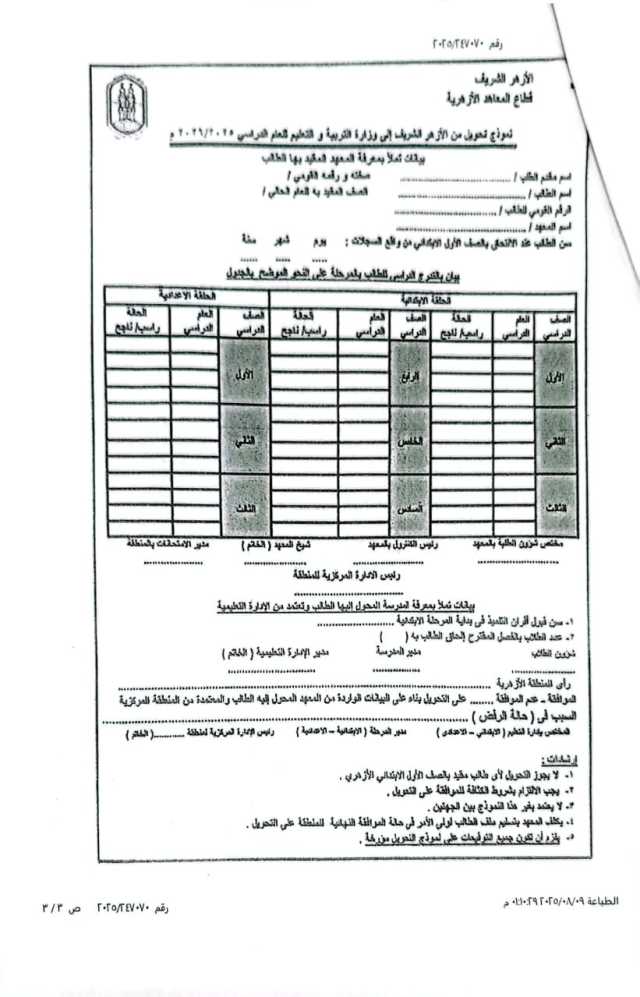 رقم ٢٠٢٥/٢٤٧٠٧٠
الأزهر الشريف
قطاع المعاهد الأزهرية
نموذج تحويل من الأزهر الشريف إلى وزارة التربية و التعليم للعام الدراسي ٢٠٢٦/٢٠٢٥ م
بيانات تملأ بمعرفة المعهد المقيد بها الطالب
اسم مقدم الطلب / .............................. صلته و رقمه القومي /
اسم الطالب / .............................. الصف المقيد به العام الحالي /
الرقم القومي للطالب / ..............................
اسم المعهد / ..............................
سن الطالب عند الالتحاق بالصف الأول الابتدائي من واقع السجلات : يوم شهر سنة
..... ..... .....
بيان بالتدرج الدراسي للطالب بالمرحلة على النحو الموضح بالجدول
الحلقة الابتدائية الحلقة الاعدادية
الصف الدراسي العام الدراسي الحالة راسب/ ناجح الصف الدراسي العام الدراسي الحالة راسب/ ناجح الصف الدراسي العام الدراسي الحالة راسب/ ناجح
الأول الرابع الأول
الثاني الخامس الثاني
الثالث السادس الثالث
مختص شؤون الطلبة بالمعهد رئيس الكنترول بالمعهد شيخ المعهد ( الخاتم ) مدير الامتحانات بالمنطقة
.................... .................... .................... ....................
رئيس الادارة المركزية للمنطقة
..............................
بيانات تملأ بمعرفة المدرسة المحول إليها الطالب وتعتمد من الإدارة التعليمية
١- سن قبول أقران التلميذ فى بداية المرحلة الابتدائية ....................
٢- عدد الطلاب بالفصل المقترح إلحاق الطالب به ( )
شؤون الطلاب مدير المدرسة مدير الإدارة التعليمية ( الخاتم )
.................... .................... ....................
رأى المنطقة الأزهرية ............................................................
الموافقة – عدم الموافقة ........ على التحويل بناء على البيانات الواردة من المعهد المحول إليه الطالب والمعتمدة من المنطقة المركزية
السبب فى ( حالة الرفض ) ............................................................
المختص بإدارة التعليم ( الابتدائي – الاعدادى ) مدير المرحلة ( الابتدائية – الاعدادية ) رئيس الإدارة المركزية لمنطقة ............( الخاتم )
إرشادات :
١- لا يجوز التحويل لأى طالب مقيد بالصف الأول الابتدائي الأزهري .
٢- يجب الالتزام بشروط الكثافة للموافقة على التحويل .
٣- لا يعتد بغير هذا النموذج بين الجهتين .
٤- يكلف المعهد بتسليم ملف الطالب لولي الأمر في حالة الموافقة النهائية للمنطقة على التحويل .
٥- يلزم أن تكون جميع التوقيعات على نموذج التحويل مؤرخة .
الطباعة ٢٠٢٥/٠٨/٠٩ ٠١:١٠:٢٩ م
رقم ٢٠٢٥/٢٤٧٠٧٠ ص ٣ / ٣